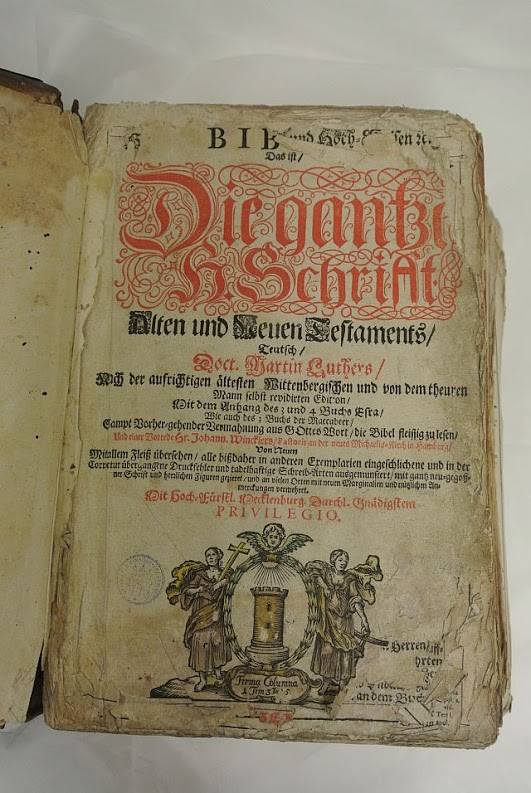 BIB
Das ist/
Die gantze
H. Schrifft
Alten und Neuen Testaments/
Teutsch/
Doct. Martin Luthers/
Nach der aufrichtigen ältesten Wittenbergischen und von dem theuren
Mann selbst revidirten Edition/
Mit dem Anhang des 3 und 4 Buchs Esra/
Wie auch des 3 Buchs der Maccabeer/
Sampt Vorher-gehender Vermahnung aus GOttes Wort/ die Bibel fleissig zu lesen/
Und einer Vorrede Hr. Johann. Wincklers/ Pastoris an der neuen Michaelis-Kirch in Hamburg/
Von Neuen
Mit allem Fleiß übersehen/ alle bißdaher in anderen Exemplarien eingeschlichene und in der
Correctur übergangene Druckfehler und tadelhafftige Schreib-Arten ausgemustert/ mit gantz neu-gegoß-
ner Schrifft und herrlichen Figuren gezieret/ und an vielen Orten mit neuen Marginalien und nützlichen An-
merckungen vermehret.
Mit Hoch-Fürstl. Mecklenburg. Durchl. Gnädigstem
PRIVILEGIO.
Herren
Firma Columna
1 Tim 3
an dem